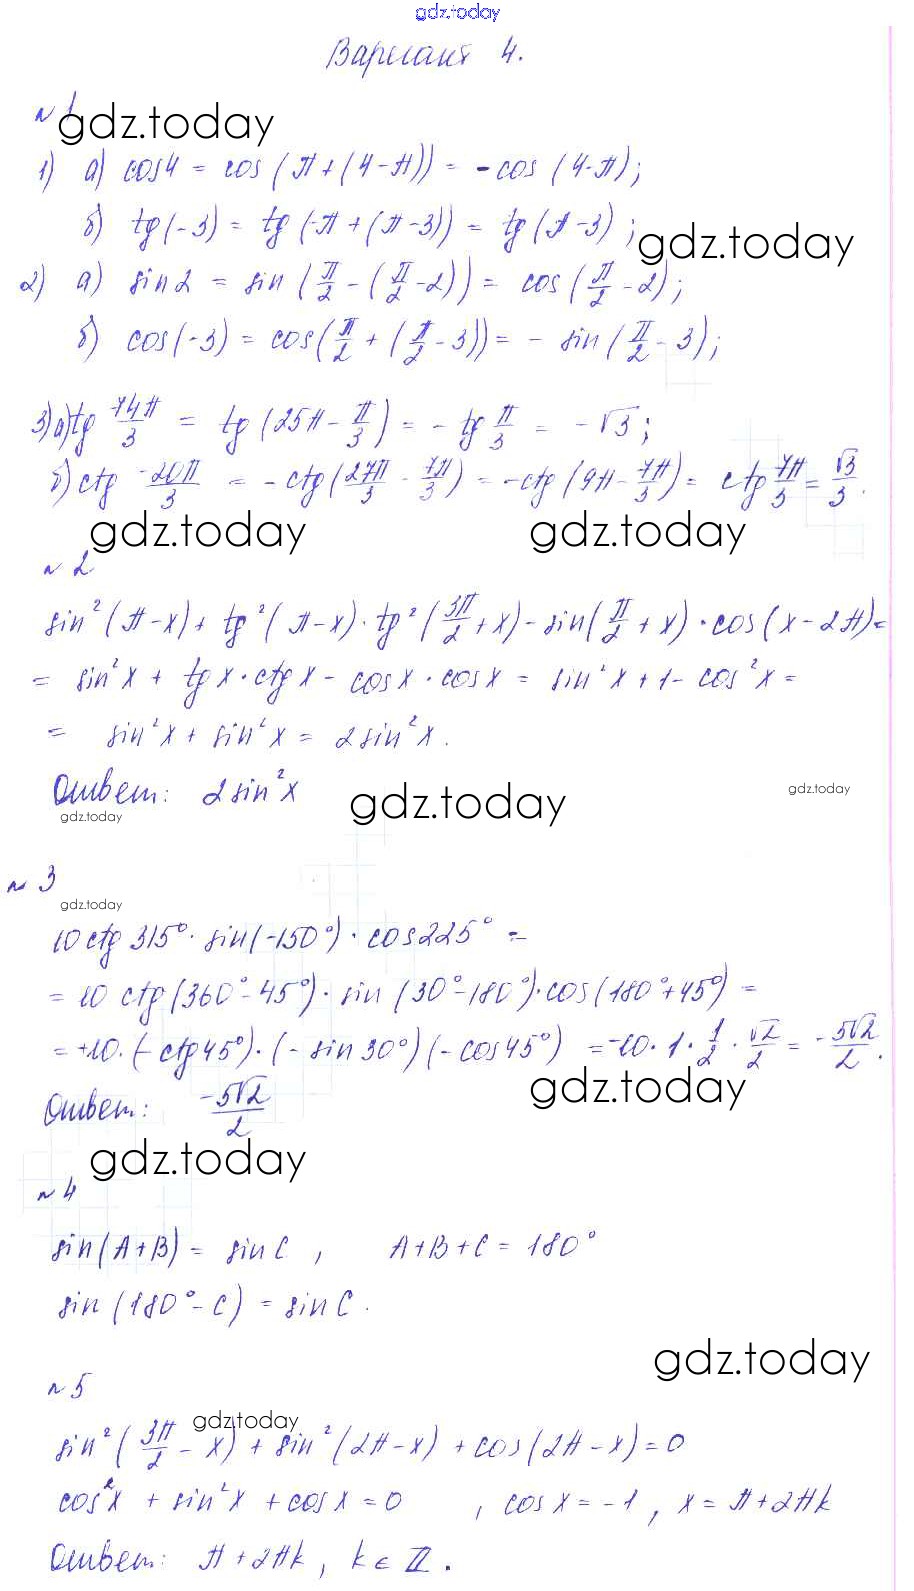 gdz.today
Вариант 4.
№ 1
gdz.today
1) а) cos4 = cos (π + (4 - π)) = - cos (4-π);
б) tg(-3) = tg(-π + (π - 3)) = tg(π - 3);
gdz.today
2) а) sin2 = sin (π/2 - (π/2 - 2)) = cos (π/2 - 2);
б) cos(-3) = cos(π/2 + (π/2 - 3)) = - sin (π/2 - 3);
3) а) tg 74π/3 = tg (25π - π/3) = - tg π/3 = - √3;
б) ctg -20π/3 = - ctg (27π/3 - 7π/3) = - ctg (9π - 7π/3) = ctg 7π/3 = √3/3.
gdz.today gdz.today
№ 2
sin² (π - x) + tg² (π - x) · tg² (3π/2 + x) - sin(π/2 + x) · cos (x - 2π) =
= sin² x + tg x · ctg x - cos x · cos x = sin² x + 1 - cos² x =
= sin² x + sin² x = 2 sin² x.
Ответ: 2 sin² x
gdz.today gdz.today
gdz.today
№ 3
gdz.today
10 ctg 315° · sin(-150°) · cos 225° =
= 10 ctg (360° - 45°) · sin (30° - 180°) · cos (180° + 45°) =
= +10 · (- ctg 45°) · (- sin 30°) (- cos 45°) = -10 · 1 · 1/2 · √2/2 = - 5√2/2.
gdz.today
Ответ: -5√2/2
gdz.today
№ 4
sin (A + B) = sin C , A + B + C = 180°
sin (180° - C) = sin C.
gdz.today
№ 5
gdz.today
sin² (3π/2 - x) + sin² (2π - x) + cos (2π - x) = 0
cos² x + sin² x + cos x = 0 , cos x = - 1 , x = π + 2πk
Ответ: π + 2πk, k ∈ Z.